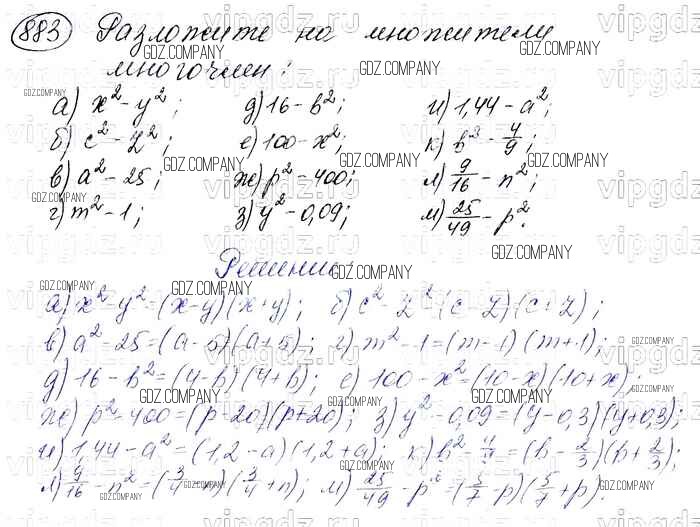 883 Разложите на множители
многочлен:
а) x² - y²; д) 16 - b²; и) 1,44 - a²;
б) c² - z²; е) 100 - x²; к) b² - 4/9;
в) a² - 25; ж) p² - 400; л) 9/16 - n²;
г) m² - 1; з) y² - 0,09; м) 25/49 - p².
Решение:
а) x² - y² = (x - y)(x + y); б) c² - z² (c - z)(c + z);
в) a² - 25 = (a - 5)(a + 5); г) m² - 1 = (m - 1)(m + 1);
д) 16 - b² = (4 - b)(4 + b); е) 100 - x² = (10 - x)(10 + x);
ж) p² - 400 = (p - 20)(p + 20); з) y² - 0,09 = (y - 0,3)(y + 0,3);
и) 1,44 - a² = (1,2 - a)(1,2 + a); к) b² - 4/9 = (b - 2/3)(b + 2/3);
л) 9/16 - n² = (3/4 - n)(3/4 + n); м) 25/49 - p² = (5/7 - p)(5/7 + p).
GDZ.COMPANY
vipgdz.ru